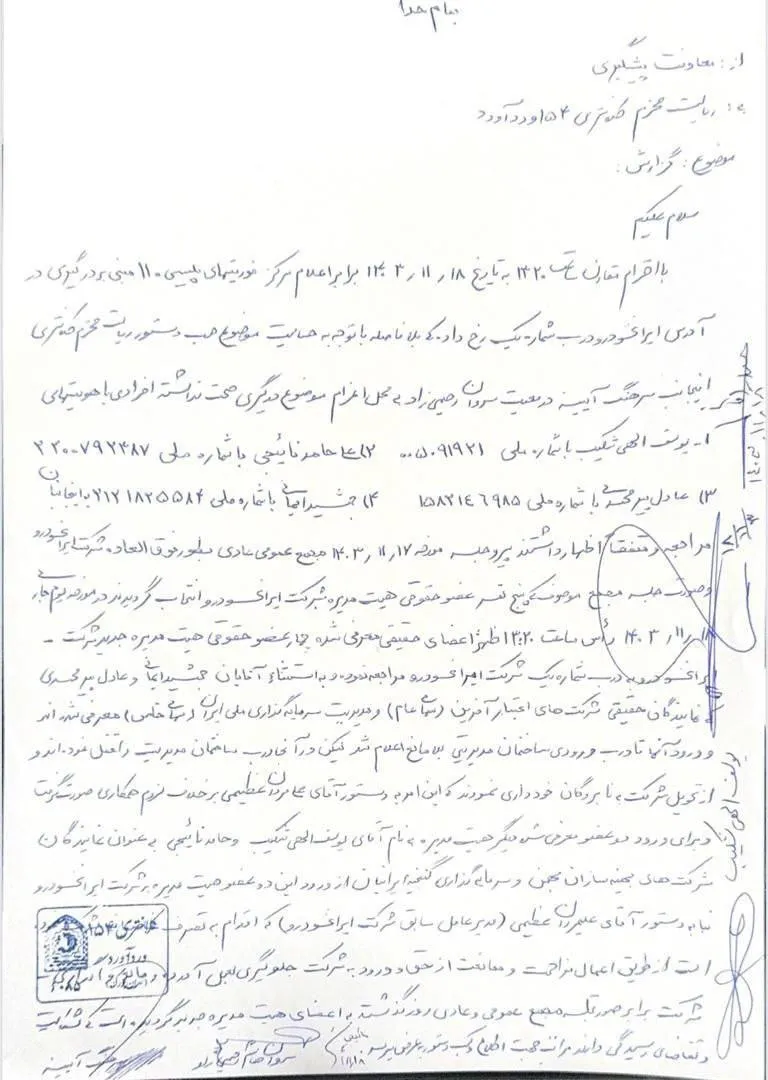 بنام خدا
از: معاونت پیشگیری
به: ریاست محترم کلانتری ۱۵۴ وردآورد
موضوع: گزارش:
سلام علیکم
با احترام مقارن ساعت ۱۳:۲۰ به تاریخ ۱۴۰۳/۱۱/۱۸ برابر اعلام مرکز فوریتهای پلیسی ۱۱۰ مبنی بر درگیری در
آدرس ایرانخودرو درب شماره یک رخ داده که بلافاصله با توجه به حساسیت موضوع حسب دستور ریاست محترم کلانتری
اینجانب سرهنگ آیینه در معیت سروان رحیمی راد به محل اعزام موضوع درگیری صحت نداشته افرادی با هویتهای
۱- یوسف الهی شکیب با شماره ملی ۰۰۵۰۹۱۹۲۱ ۲) حامد نائیجی با شماره ملی ۲۲۰۰۷۹۲۴۸۷
۳) عادل پیرمحمدی با شماره ملی ۱۵۸۲۱۴۶۹۸۵ ۴) جمشید ایمانی با شماره ملی ۲۱۲۱۸۲۵۵۸۴ به اینجانبان
مراجعه و متفقاً اظهار داشتند پیرو جلسه مورخه ۱۴۰۳/۱۱/۱۷ مجمع عمومی عادی بطور فوق العاده شرکت ایرانخودرو
وصورت جلسه مجمع موصوف که پنج نفر عضو حقوقی هیت مدیره شرکت ایرانخودرو انتخاب گردیدند در مورخه یوم جاری
۱۴۰۳/۱۱/۱۸ رأس ساعت ۱۳:۲۰ ظهر اعضای حقیقی معرفی شده چهار عضو حقوقی هیت مدیره جدید شرکت -
ایرانخودرو به درب شماره یک شرکت ایرانخودرو مراجعه نموده و به استثناء آقایان جمشید ایمانی و عادل پیرمحمدی
که نمایندگان حقیقی شرکت های اعتبار آفرین (سهامی عام) و مدیریت سرمایه گذاری ملی ایران (سهامی خاص) معرفی شده اند
و ورود آنها تا درب ورودی ساختمان مدیریتی بلامانع اعلام شد لیکن در آنجا درب ساختمان مدیریت را قفل نموده اند و
از تحویل شرکت به نامبردگان خودداری نمودند که این امر به دستور آقای علیمردان عظیمی بر خلاف لزوم همکاری صورت گرفت
و برای ورود دو عضو معرفی شده دیگر هیت مدیره به نام آقای یوسف الهی شکیب و حامد نائیجی به عنوان نمایندگان
شرکت های بهینه سازان بهمن و سرمایه گذاری گنجینه ایرانیان از ورود این دو عضو هیت مدیره به شرکت ایرانخودرو
بنا به دستور آقای علیمردان عظیمی (مدیرعامل سابق شرکت ایرانخودرو) که اقدام به تصرف
است از طریق اعمال مزاحمت و ممانعت از حق و ورود به شرکت جلوگیری بعمل آمده
شرکت برابر صورتجلسه مجمع عمومی و عادی روز گذشته به اعضای هیت مدیره جدید گردیده است که شکایت
و تقاضای رسیدگی دارند مراتب جهت اطلاع و کسب دستور بعرض میرسد
سرهنگ آیینه
کلانتری ۱۵۴
وردآورد
یوسف الهی شکیب